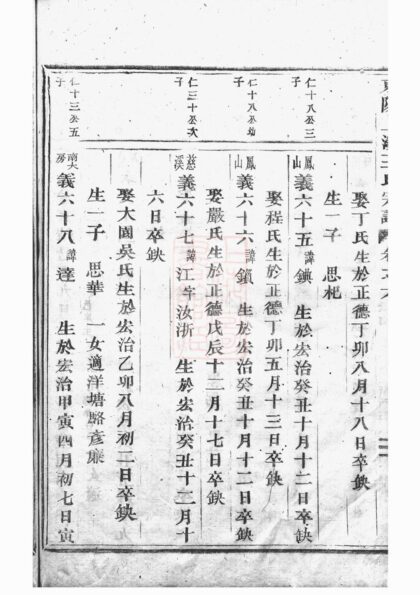 娶丁氏生於正德丁卯八月十八日卒缺
生一子 思杞
仁十八公三子
鳳山 義六十五 諱鐭 生於宏治癸丑十月十二日卒缺
娶程氏生於正德丁卯五月十三日卒缺
仁十八公幼子
鳳山 義六十六 諱鎖 生於宏治癸丑十月十二日卒缺
娶嚴氏生於正德戊辰十二月十七日卒缺
仁三十公次子
慈溪 義六十七 諱江字汝浙 生於宏治癸丑十二月十
六日卒缺
娶大園吳氏生於宏治乙卯八月初二日卒缺
生一子 思華 一女適洋塘駱彥廉
仁十三公五子
南大房 義六十八 諱達 生於宏治甲寅四月初七日寅